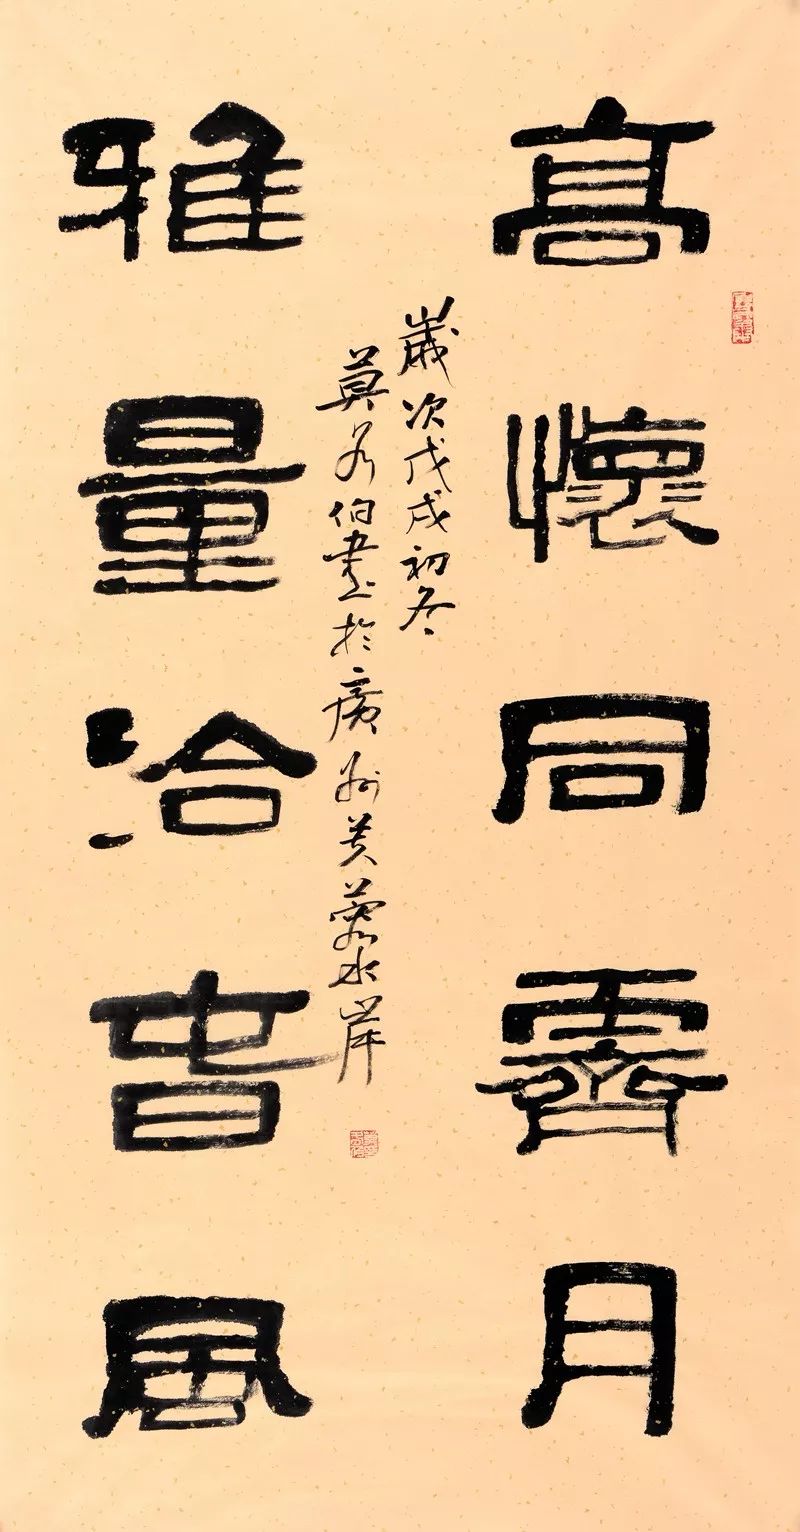 髙懷同霽月
歲次戊戌初冬
莫各伯書於廣州芙蓉水岸
雅量洽旾風